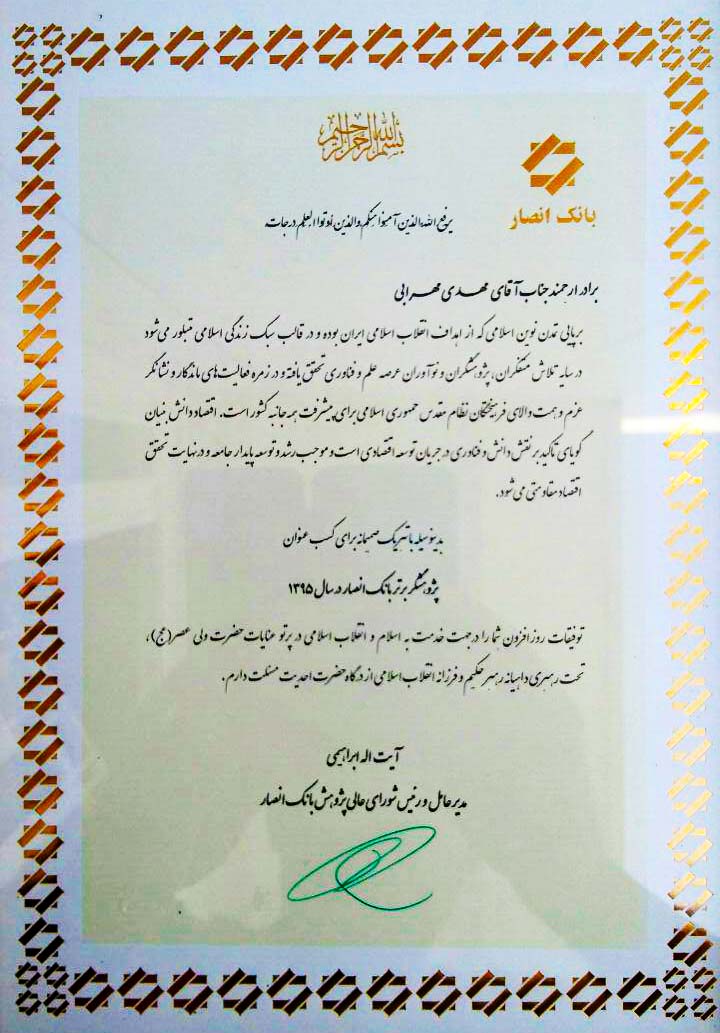 بسم الله الرحمن الرحیم
بانک انصار
یرفع الله الذین آمنوا منکم والذین اوتوا العلم درجات
برادر ارجمند جناب آقای مهدی مهرابی
برپایی تمدن نوین اسلامی که از اهداف انقلاب اسلامی ایران بوده و در قالب سبک زندگی اسلامی متبلور می‌شود
در سایه تلاش متفکران، پژوهشگران و نوآوران عرصه علم و فناوری تحقق یافته و در زمره فعالیت‌های ماندگار و نشانگر
عزم و همت والای فرهیختگان نظام مقدس جمهوری اسلامی برای پیشرفت همه جانبه کشور است. اقتصاد دانش بنیان
گویای تاکید بر نقش دانش و فناوری در جریان توسعه اقتصادی است و موجب رشد و توسعه پایدار جامعه و در نهایت تحقق
اقتصاد مقاومتی می‌شود.
بدینوسیله با تبریک صمیمانه برای کسب عنوان
پژوهشگر برتر بانک انصار در سال ۱۳۹۵
توفیقات روزافزون شما را در جهت خدمت به اسلام و انقلاب اسلامی در پرتو عنایات حضرت ولی عصر(عج)،
تحت رهبری داهیانه رهبر حکیم و فرزانه انقلاب اسلامی از درگاه حضرت احدیت مسئلت دارم.
آیت اله ابراهیمی
مدیرعامل و رئیس شورای عالی پژوهش بانک انصار